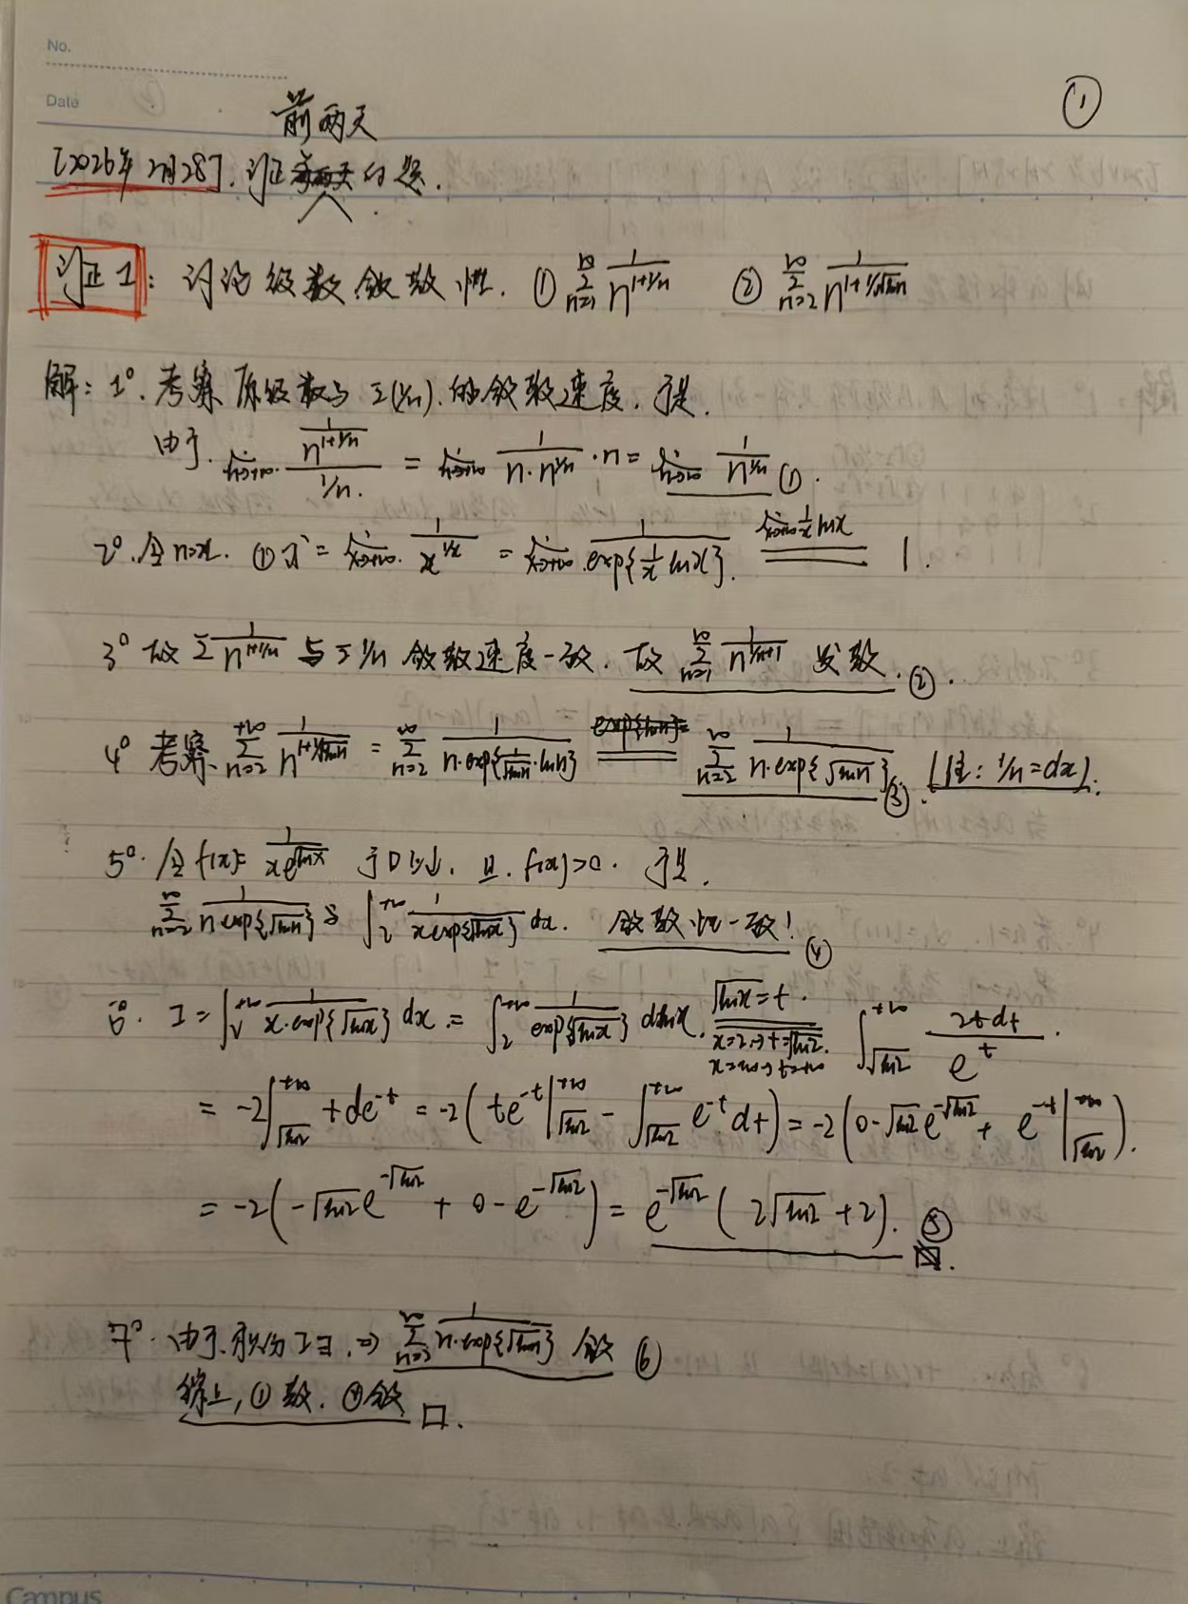 No.
Date
①
前两天
[2026年2月28]. 订正的题.
订正1: 讨论级数敛散性. ① ∑_{n=1}^{∞} 1/n^{1+1/n} ② ∑_{n=2}^{∞} 1/n^{1+1/√lnn}
解: 1°. 考察原级数与 Σ(1/n) 的敛散速度. 于是.
由于. lim_{n→+∞} (1/n^{1+1/n})/(1/n) = lim_{n→+∞} 1/(n·n^{1/n})·n = lim_{n→∞} 1/n^{1/n} ①.
2°. 令n=x. ①式 = lim_{x→+∞} 1/x^{1/x} = lim_{x→+∞} 1/exp{1/x lnx} ==(lim_{x→+∞} 1/x lnx)== 1.
3° 故 Σ 1/n^{1+1/n} 与 Σ1/n 敛散速度一致. 故 ∑_{n=1}^{∞} 1/n^{1/n+1} 发散. ②.
4° 考察 ∑_{n=2}^{+∞} 1/n^{1+1/√lnn} = ∑_{n=2}^{∞} 1/(n·exp{1/√lnn·lnn}) == ∑_{n=2}^{∞} 1/(n·exp{√lnn}) ③. [注: 1/n=dx].
5°. 令 f(x)= 1/(xe^{√lnx}) 于D上↓. 且. f(x)>0. 于是.
∑_{n=2}^{∞} 1/(n·exp{√lnn}) 与 ∫_{2}^{+∞} 1/(x exp{√lnx}) dx. 敛散性一致! ④
6°. I = ∫_{2}^{+∞} 1/(x·exp{√lnx}) dx = ∫_{2}^{+∞} 1/(exp{√lnx}) dlnx. ==(√lnx=t. x=2→t=√ln2. x=+∞→t=+∞)== ∫_{√ln2}^{+∞} 2tdt/e^{t}.
= -2∫_{√ln2}^{+∞} tde^{-t} = -2(te^{-t}|_{√ln2}^{+∞} - ∫_{√ln2}^{+∞} e^{-t}dt) = -2(0-√ln2e^{-√ln2} + e^{-t}|_{√ln2}^{+∞}).
= -2(-√ln2e^{-√ln2} + 0 - e^{-√ln2}) = e^{-√ln2}(2√ln2+2). ⑤
7°. 由于. 积分I∃. ⇒ ∑_{n=2}^{∞} 1/(n·exp{√lnn}) 敛 ⑥
综上, ①散. ②敛 □.
Campus